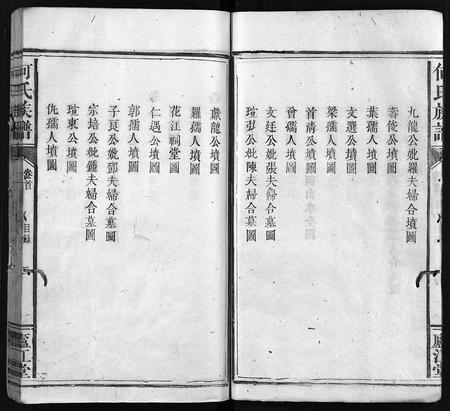 何氏族譜
九龍公妣羅夫婦合墳圖
壽俊公墳圖
葉孺人墳圖
文選公墳圖
梁孺人墳圖
首清公墳圖
曾孺人墳圖
文廷公妣張夫婦合墓圖
瑄弘公妣陳夫婦合墓圖
廬江堂
獻龍公墳圖
羅孺人墳圖
花江祠堂圖
仁遇公墳圖
郭孺人墳圖
子良公妣鄧夫婦合墓圖
宗培公妣鍾夫婦合墓圖
瑄東公墳圖
仇孺人墳圖
何氏族譜
卷首
目錄
一
廬江堂